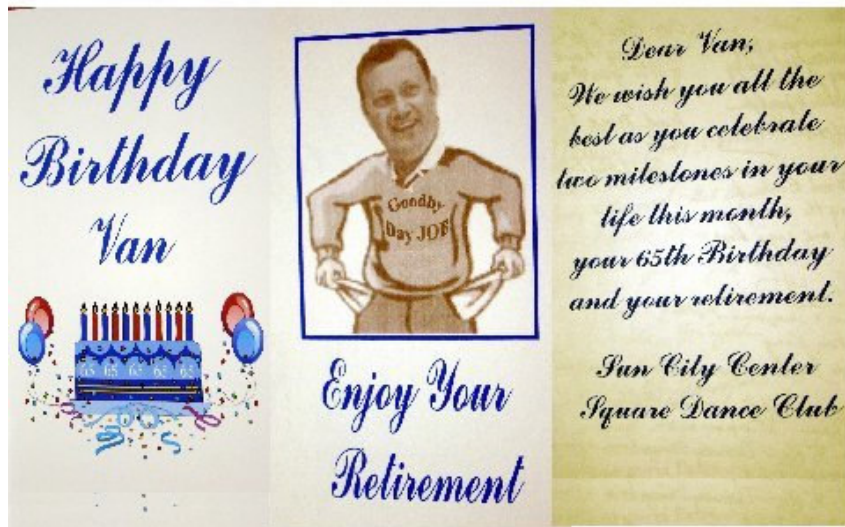 Happy
Birthday
Van
65 65 65 65 65
Goodby
Day JOB
Enjoy Your
Retirement
Dear Van,
We wish you all the
best as you celebrate
two milestones in your
life this month,
your 65th Birthday
and your retirement.
Sun City Center
Square Dance Club